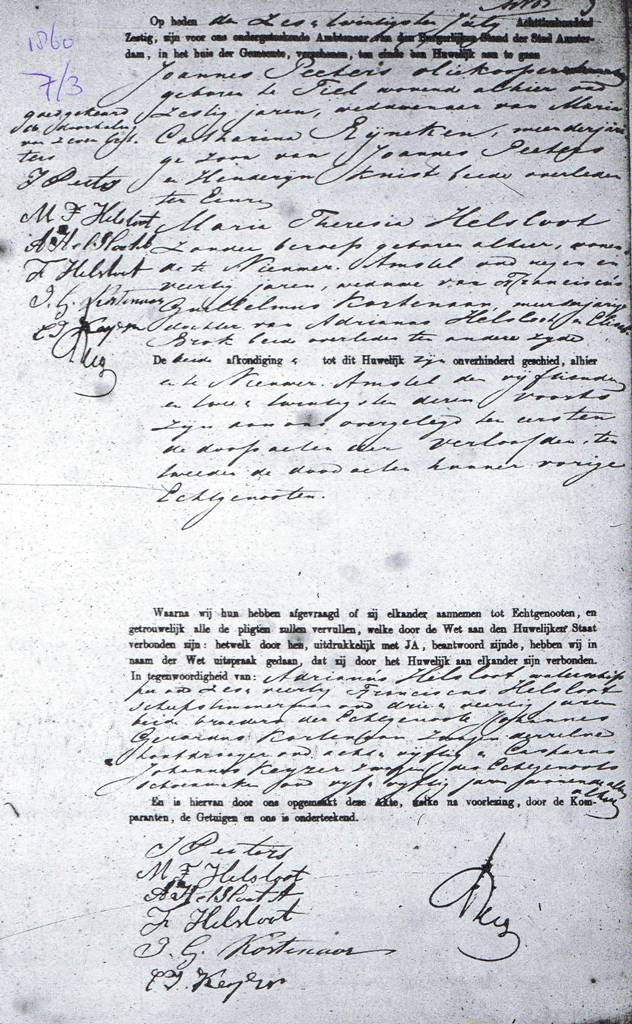 1860
7/3
Op heden den Zes en twintigsten July Achttienhonderd
Zestig, zijn voor ons ondergeteekende Ambtenaar van den Burgerlijken Stand der Stad Amster-
dam, in het huis der Gemeente, verschenen, ten einde een Huwelijk aan te gaan
Joannes Peeters oliekooper
geboren te Tiel wonende alhier oud
zestig jaren, weduwenaar van Maria
Catharina Rijneken, meerderjari
ge zoon van Joannes Peeters
en Hendrijn Knist beide overleden
ter Eenre
goedgekeurd
de doorhaling
van zeven
ters
J Peeters
M F Helsloot
A Helsloot
F Helsloot
J. G. Kortenaar
C J Keyzer
Maria Theresia Helsloot
Zonder beroep geboren alhier, wonen
de te Nieuwer Amstel oud negen en
veertig jaren, weduwe van Franciscus
Guillelmus Kortenaar, meerderjarige
dochter van Adrianus Helsloot en
Brok beide overleden ter andere zyde
De beide afkondigingen tot dit Huwelijk zijn onverhinderd geschied, alhier
en te Nieuwer Amstel den vijftienden
en twee en twintigsten dezer voorts
zijn aan ons overgelegd ten eersten
de doopacten der verloofden, ten
tweeden de doodacten hunner vorige
Echtgenooten.
Waarna wij hun hebben afgevraagd of zij elkander aannemen tot Echtgenooten, en
getrouwelijk alle de pligten zullen vervullen, welke door de Wet aan den Huwelijken Staat
verbonden zijn: hetwelk door hen, uitdrukkelijk met JA, beantwoord zijnde, hebben wij in
naam der Wet uitspraak gedaan, dat zij door het Huwelijk aan elkander zijn verbonden.
In tegenwoordigheid van: Adrianus Helsloot
oud zes en veertig Franciscus Helsloot
scheepstimmerman oud drie en veertig jaren
beide broeders der Echtgenoote Johannes
Gerardus Kortenaar, zoon derzelve
oud acht en vijftig en Casparus
Johannes Keyzer des Echtgenoots
schoenmaker oud vijf en vijftig jaren wonende allen
alhier
En is hiervan door ons opgemaakt deze Akte, welke na voorlezing, door de Kom-
paranten, de Getuigen en ons is onderteekend.
J Peeters
M F Helsloot
A Helsloot
F Helsloot
J. G. Kortenaar
C J. Keyzer